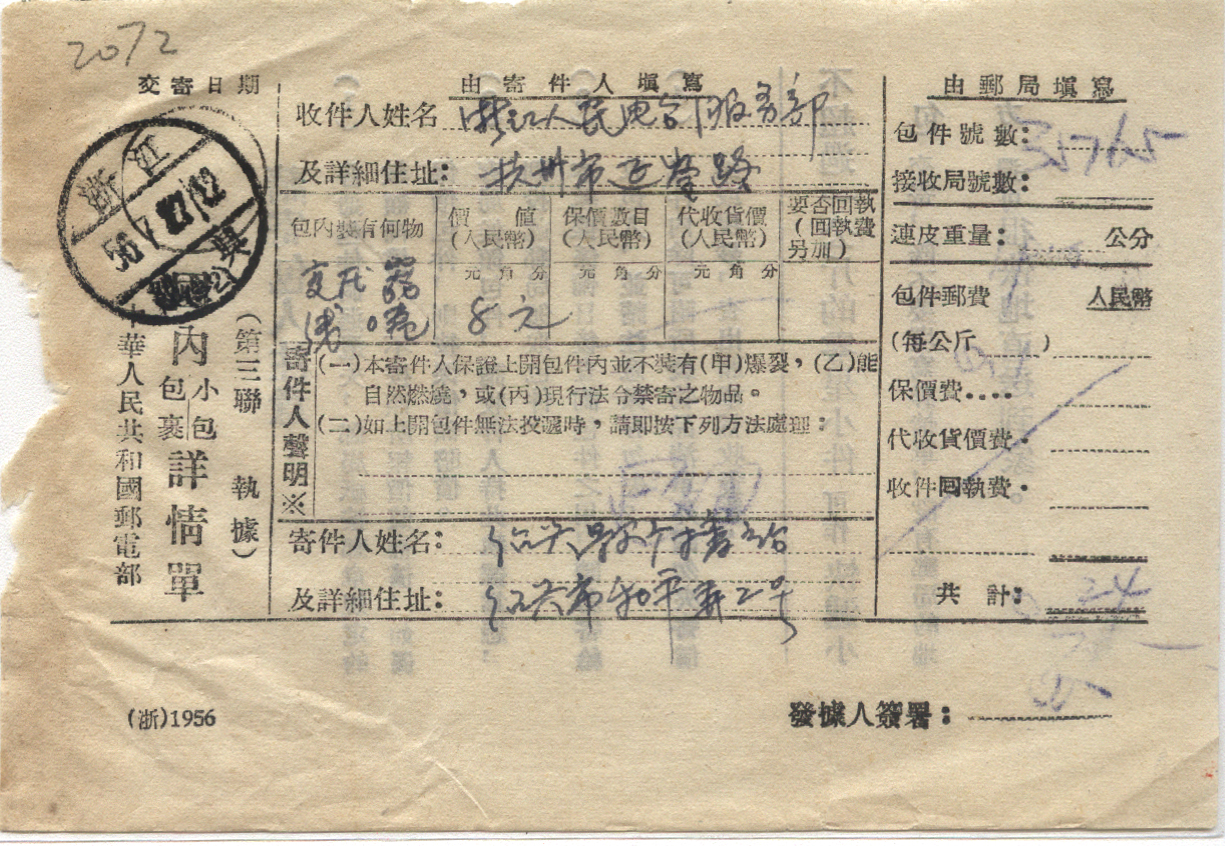 2072
交寄日期
由寄件人填寫
由郵局填寫
收件人姓名 浙江人民电台服务部
及詳細住址: 杭州市延齡路
包件號數:
接收局號數:
連皮重量: 公分
包件郵費 人民幣
(每公斤 )
保價費....
代收貨價費.
收件回執費.
共計: 24
包內裝有何物
價值(人民幣)
保價數目(人民幣)
代收貨價(人民幣)
要否回執(回執費另加)
元角分 元角分 元角分
变压器
线 8元
寄件人聲明※
(一)本寄件人保證上開包件內並不裝有(甲)爆裂,(乙)能
自然燃燒,或(丙)現行法令禁寄之物品。
(二)如上開包件無法投遞時,請即按下列方法處理:
寄件人姓名: 绍兴县
及詳細住址: 绍兴市和平弄2号
浙江
56 7
中華人民共和國郵電部
內 小包 包裹 詳情單
(第三聯 執據)
(浙)1956
發據人簽署: